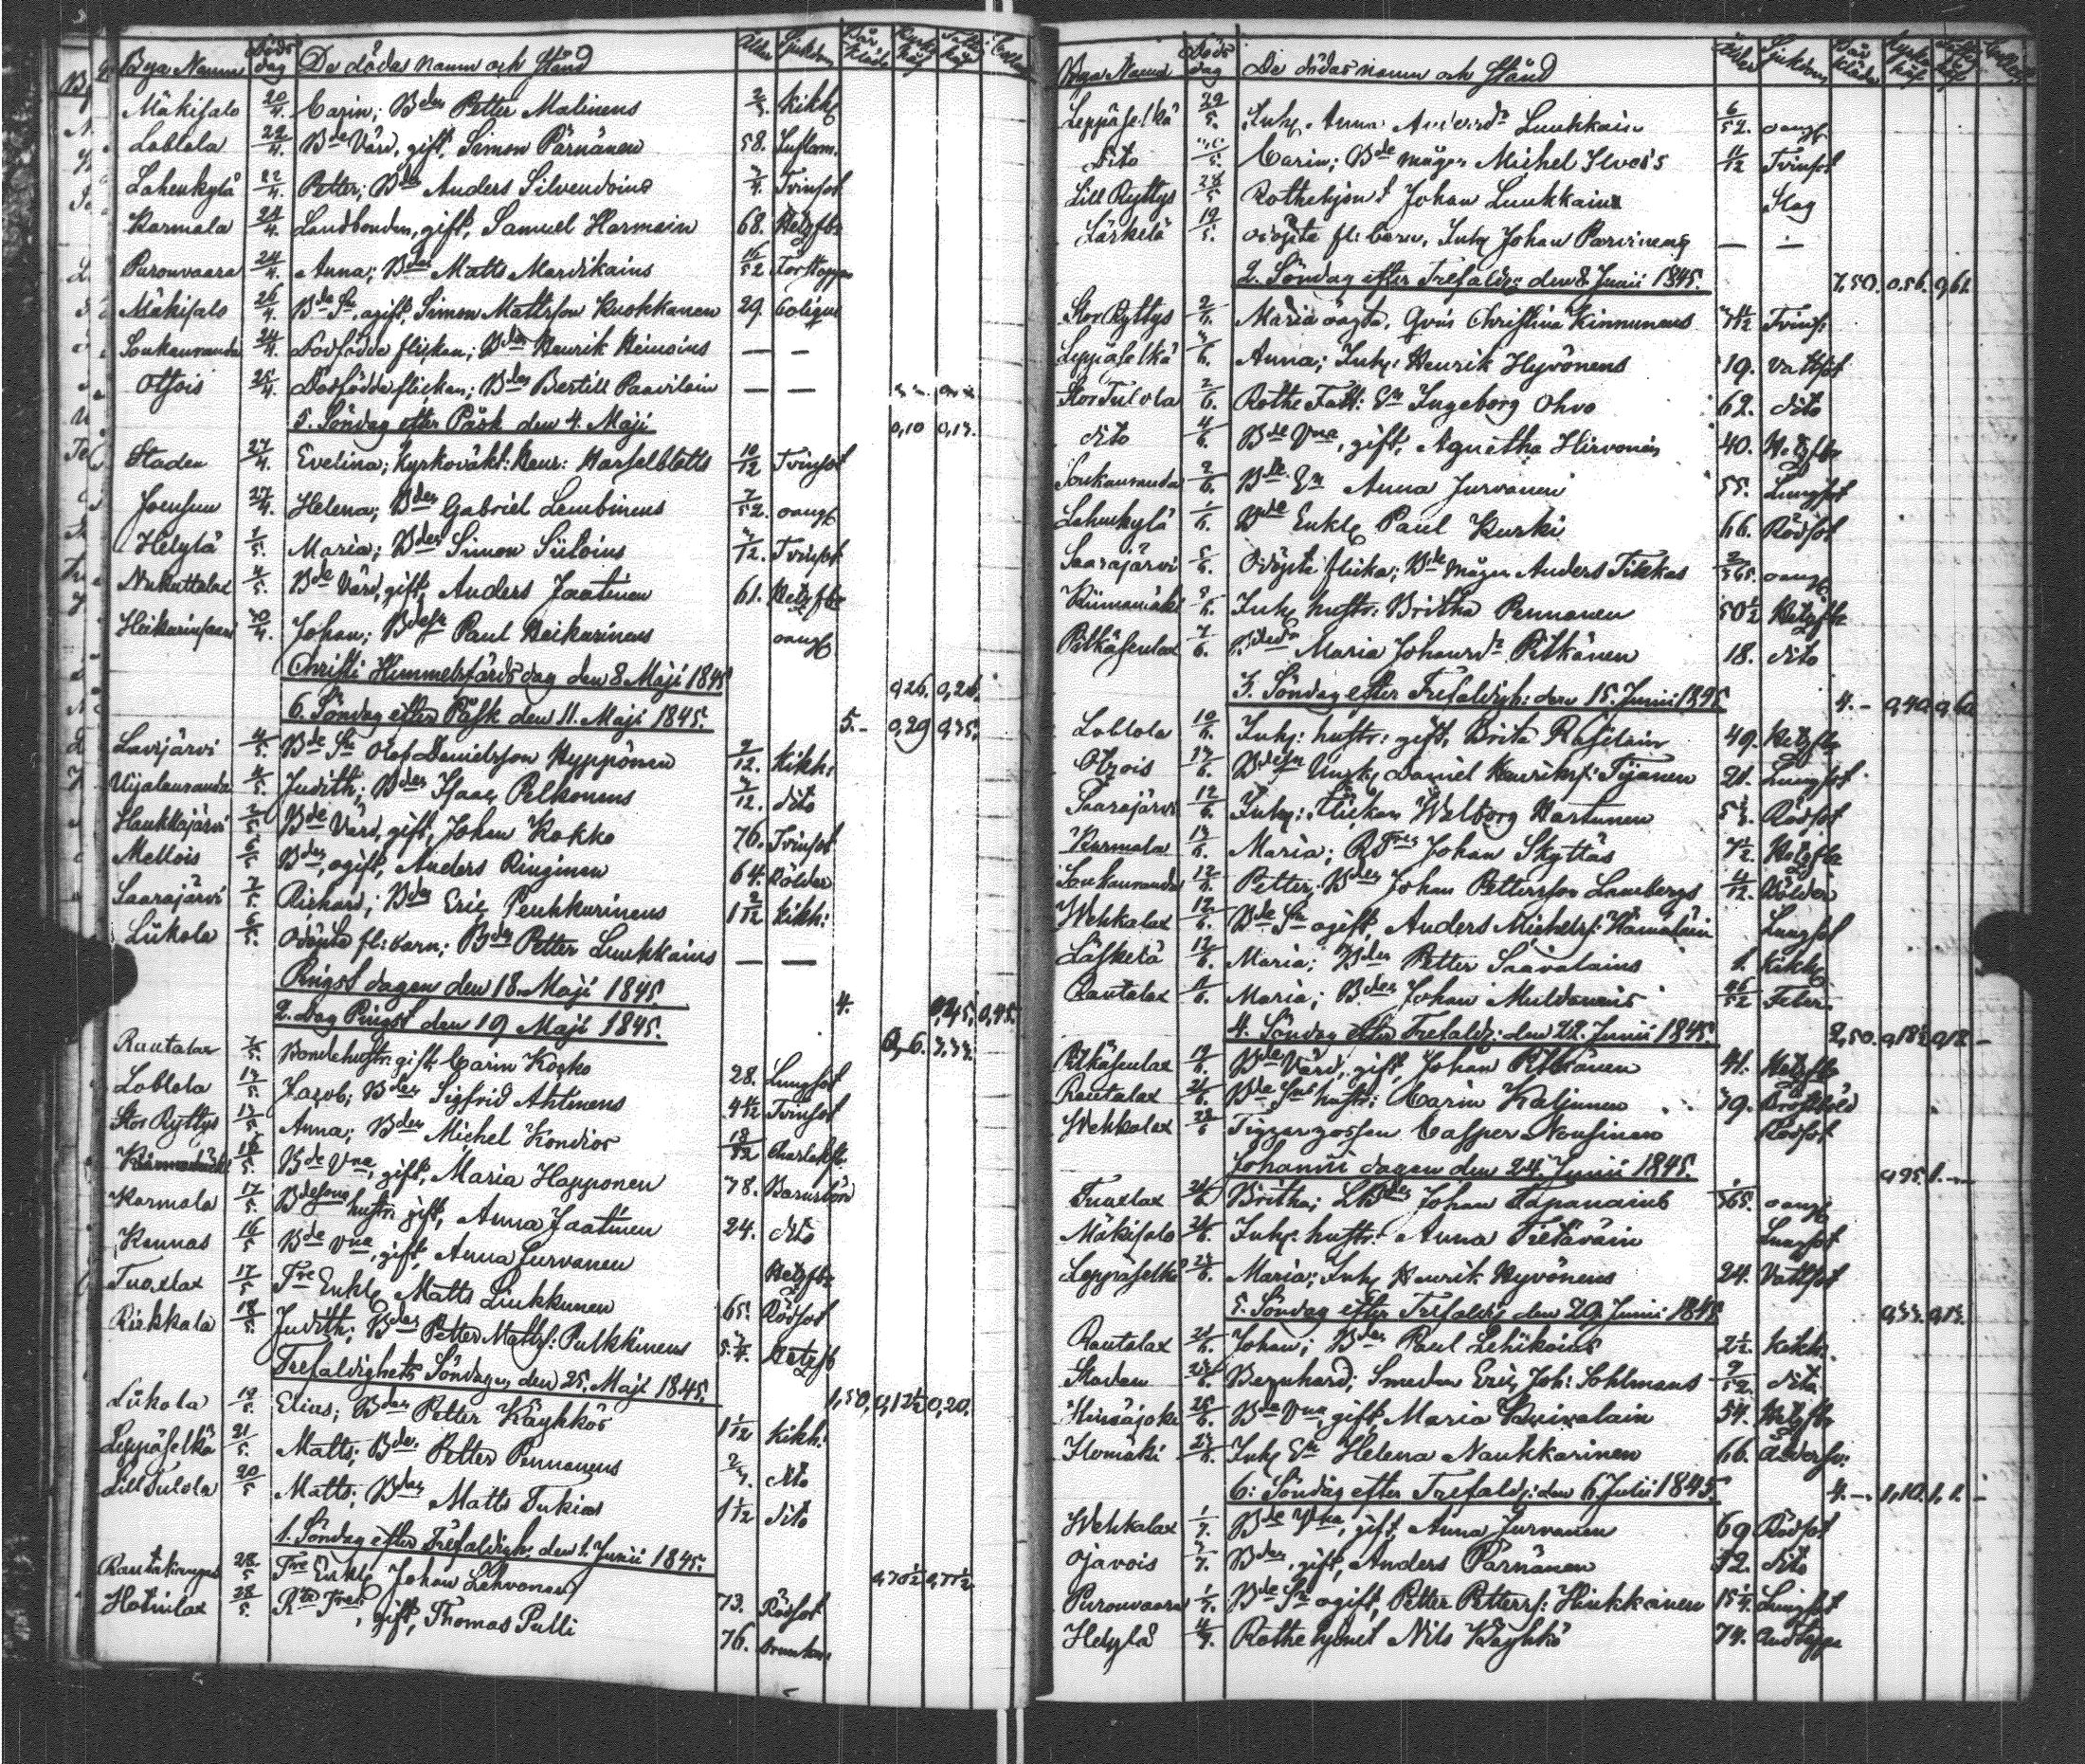 Bya Namn Döds dag De dödas namn och Stånd Ålder Sjukdom Bår kläde
Mäkisalo 20/4. Carin; Bdes Petter Malinens Kikh
Loblola 22/4. Bde Värd, gift, Simon Pärnänen 58. Inflam.
Lahenkylä 22/4. Petter; Bdes Anders Silvendoins Tvinsot
Karmala 24/4. Landbonden, gift, Samuel Harmoin 68. Hetzfbr
Puronvaara 24/4. Anna; Bdes Matts Mardikains 16/52 Förstoppn
Mäkisalo 26/4. Bde Sn, ogift, Simon Mattsson Kuokkanen 29. Colique
Soukanranda 24/4. Dödfödda flickan; Bdes Henrik Heinoins — —
Otsois 25/4. Dödfödda flickan; Bdes Bertill Paavilain — —
5. Söndag efter Påsk den 4. Maji 0,10 0,13.
Staden 27/4. Evelina; Kyrkoväkt: Henr: Hasselblatts 10/12 Tvinsot
Joensuu 27/4. Helena; Bdes Gabriel Lembinens 7/52. oangf
Helylä 1/5. Maria; Bdes Simon Siiloins Tvinsot
Nukuttalax 4/5. Bde Värd, gift, Anders Jaatinen 61. Hetzfbr
Heikurinsaari 30/4. Johan; Bdesn Paul Heikurinens oangf
Christi Himmelsfärds dag den 8 Maji 1845 0,26. 0,26.
6. Söndag efter Påsk den 11. Maji 1845. 5.- 0,29 0,35.
Lavijärvi 4/5. Bde Sn Olof Danielsson Hyppönen 2/12. Kikh:
Uijalanranda 4/5. Judith; Bdes Isaac Pelkonens 3/12. dito
Haukkajärvi 2/5. Bde Värd, gift, Johan Kokko 76. Tvinsot
Mellois 6/5. Bden, ogift, Anders Ringinen 64. Bölder
Saarajärvi 7/5. Richard; Bdes Eric Penkkurinens 1 2/12 Kikh:
Liikola 6/5. Odöpta fl: barn; Bdes Petter Luukkains — —
Pingst dagen den 18. Maji 1845 4. 0,45. 0,45.
2. Dag Pingst den 19 Maji 1845.
Rautalax 7/5. Bondehustr. gift Carin Kosko 28. Lungsot
Loblola 13/5. Jacob; Bdes Sigfrid Ahtinens 4 1/2 Tvinsot
Stor Ryttys 13/5. Anna; Bdes Michel Kondios Scharlakfbr.
16/5. Bde Vna, gift, Maria Happonen 38. Barnsbörd
Karmala 17/5. Bdesons hustr: gift, Anna Jaatinen 24. dito
Kannas 16/5 Bde Vna, gift, Anna Jurvanen Hetzfbr
Tuoxlax 17/5 Tre Enkl Matts Liukkunen 65. Rödsot
Riekkala 18/5. Judith; Bdes Petter Matts: Pulkkinens Hetzfb
Trefaldighets Söndagen den 25. Maji 1845. 1,50, 0,12½ 0,20.
Liikola 19/5. Elias; Bdes Petter Käyhkös 1 1/12 Kikh:
Leppäselkä 21/5. Matts; Bdes Petter Pennanens dito
Lill Tulola 20/5 Matts; Bdes Matts Tukias 1 1/2 dito
1. Söndag efter Trefaldigh: den 1. Junii 1845.
Rautakangas 28/5 Tre Enkl Johan Lehvonen 73. Rödsot
Hotinlax 28/5. Rde Tres, gift, Thomas Pulli 76.
Bya Namn Döds dag De dödas namn och Stånd Ålder Sjukdom Bår kläde
Leppäselkä 29/5. Inh. Anna Luukkain 6/52. oangf
Dito Carin; Bde mågen Michel Ilvois 11/12 Tvinsot
Lill Ryttys 28/5 Rothehjont Johan Luukkain Slag
Läskelä 19/5. odöpta fl: barn, Inh Johan Parvinens — —
2. Söndag efter Trefaldg: den 8. Junii 1845. 7,50. 0,56. 0,62.
Stor Ryttys 2/6. Maria Christina Kinnunens Tvins.
Leppäselkä 3/6. Anna; Inh: Henrik Hyvönens 19. Vattsot
Stor Tulola 2/6. Rothe Fatt: Em Ingeborg Ohvo 62. dito
dito 4/6. Bde Vna, gift, Agnetha Hirvonen 40. Hetzfbr
Soukanranda 2/6. Bde Em Anna Jurvanen 55. Lungsot
Lahenkylä 1/6. Bde Enkl Paul Kurki 66. Rödsot
Saarajärvi 5/6. Odöpta flicka; Bde mågen Anders Tikkas 2/365. oangf
Kiimamäki Inh hustr: Britha Pennanen 50½ Hetzfbr
Pitkäsenlax 7/6. Maria Johansdr Pitkänen 18. dito
3. Söndag efter Trefaldigh: den 15. Junii 1845 4.-
Loblola 10/6. Inh: hustr: gift, Brita Räselain 49. Hetzfbr
Otsois 13/6. Daniel Henriks: Tijanen 21. Lungsot
Saarajärvi 12/6. Inh: Flickan Walborg Hartunen Rödsot
Karmala 13/6. Maria; Rd Tres Johan Skyttäs Hetzfbr
Soukanranda 12/6. Petter; Bdes Johan Pettersson Lambergs 4/12. Bölder
Wehkalax 12/6. Bde Sn ogift, Anders Michels: Hämäläin Lungsot
Läskelä 12/6. Maria; Bdes Petter Saavalains 1. Kikh
Rautalax 11/6. Maria; Bdes Johan Muldanens Feber
4. Söndag efter Trefaldg: den 22. Junii 1845.
Pitkäsenlax 19/6. Bde Värd, gift, Johan Pitkänen 41. Hetzfbr
Rautalax 21/6. Bde Sns hustr: Carin Kaljunen 39. Bröstböld
Wehkalax 22/6 Tiggargossen Casper Nousinen Rödsot
Johannii dagen den 24. Junii 1845.
Tuoxlax 21/6. Britha; Johan Tapanains oangf
Mäkisalo 21/6. Inh: hustr: Anna Pietäväin Lungsot
Leppäselkä 23/6. Maria; Inh Henrik Hyvönens 24. Vattsot
5. Söndag efter Trefaldg den 29. Junii 1845
Rautalax 21/6. Johan; Bdes Paul Lehikoins 2½. Kikh:
Staden Bernhard; Smeden Eric Joh: Sohlmans 9/52. dito
25/6. Bde Vna, gift, Maria 54. Hetzfbr
Ilomäki Inh Em Helena Naukkarinen 66. Ålders:
6: Söndag efter Trefaldg: den 6 Julii 1845. 4.-. 1,10. 1,1.-
Wehkalax 1/7. Bde Vna, gift, Anna Jurvanen 69 Rödsot
Ojavois 3/7. Bden, gift, Anders Pärnänen 52. dito
Puronvaara 1/7. Bde Sn ogift, Petter Petters: Hinkkanen Lungsot
Helylä 4/7. Rothe hjonet Nils Käyhkö 74. Andtäppa